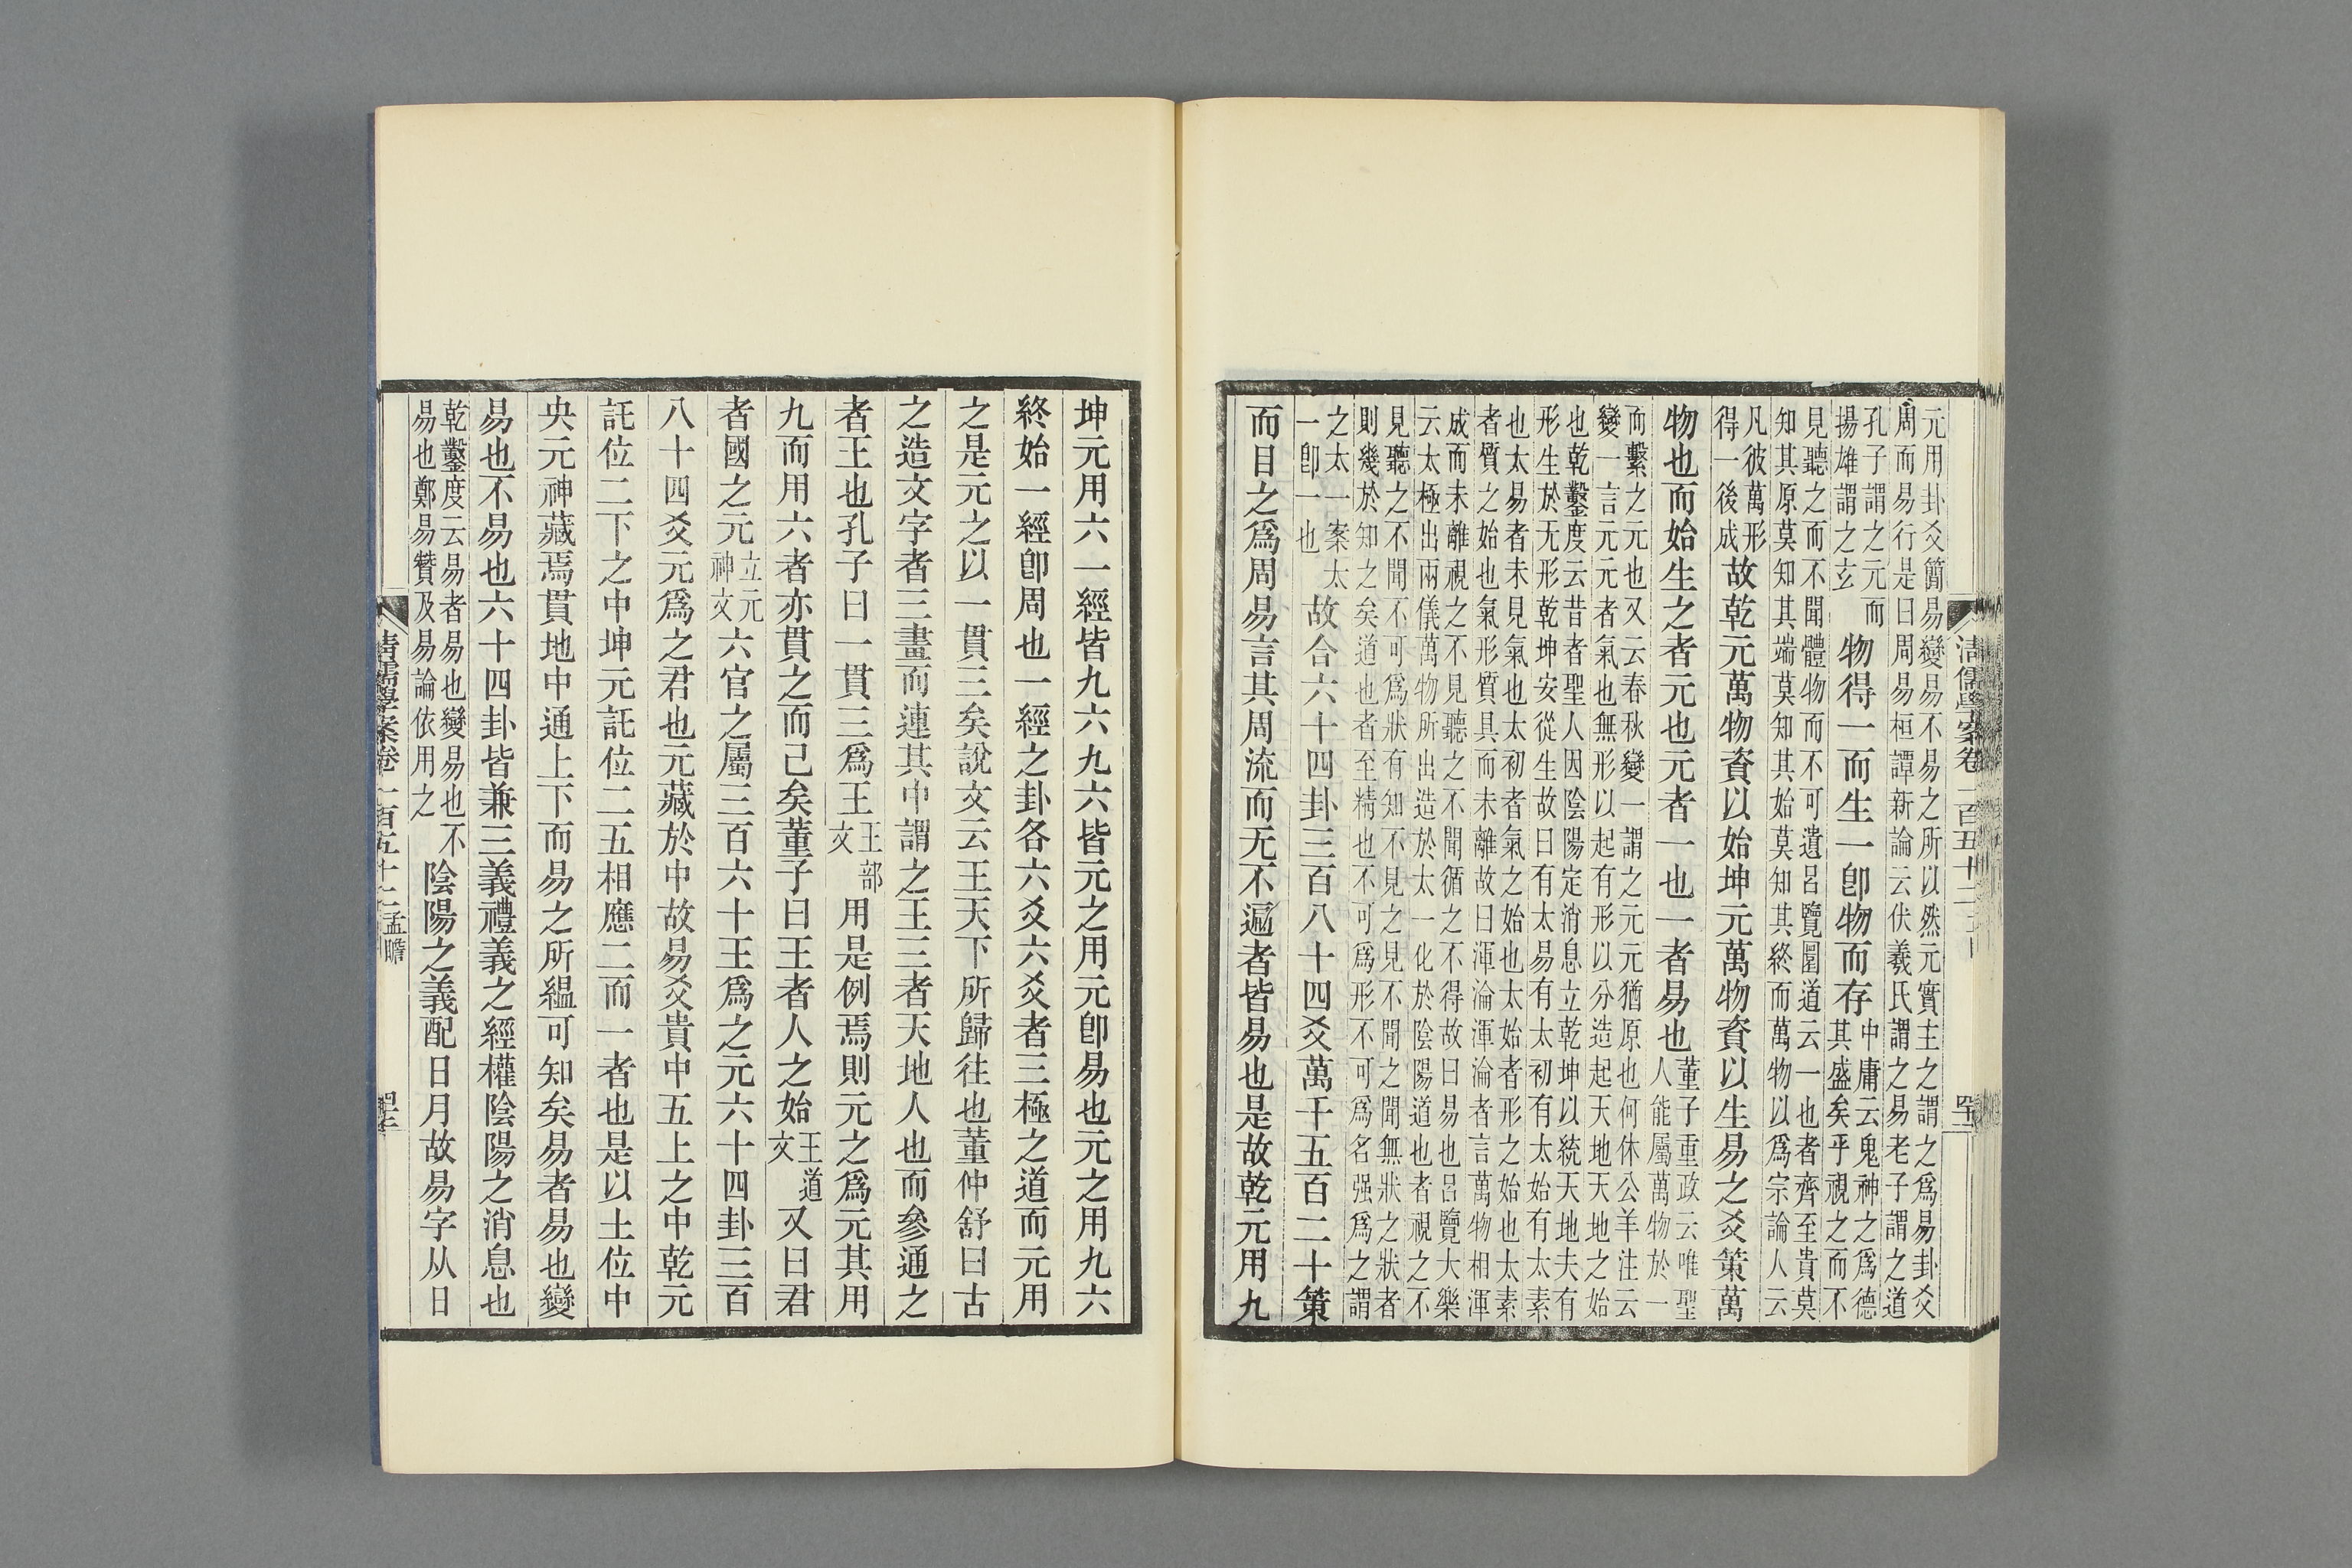 元用卦爻簡易變易不易之所以然元實主之謂之爲易卦爻
周而易行是曰周易桓譚新論云伏羲氏謂之易老子謂之道
孔子謂之元而
揚雄謂之玄
物得一而生一卽物而存
中庸云鬼神之爲德
其盛矣乎視之而不
見聽之而不聞體物而不可遺呂覽圜道云一也者齊至貴莫
知其原莫知其端莫知其始莫知其終而萬物以爲宗論人云
凡彼萬形
得一後成
故乾元萬物資以始坤元萬物資以生易之爻策萬
物也而始生之者元也元者一也一者易也
董子重政云唯聖
人能屬萬物於一
而繫之元也又云春秋變一謂之元元猶原也何休公羊注云
變一言元元者氣也無形以起有形以分造起天地天地之始
也乾鑿度云昔者聖人因陰陽定消息立乾坤以統天地夫有
形生於无形乾坤安從生故曰有太易有太初有太始有太素
也太易者未見氣也太初者氣之始也太始者形之始也太素
者質之始也氣形質具而未離故曰渾淪渾淪者言萬物相渾
成而未離視之不見聽之不聞循之不得故曰易也呂覽大樂
云太極出兩儀萬物所出造於太一化於陰陽道也者視之不
見聽之不聞不可爲狀有知不見之見不聞之聞無狀之狀者
則幾於知之矣道也者至精也不可爲形不可爲名强爲之謂
之太一案太
一卽一也
故合六十四卦三百八十四爻萬千五百二十策
而目之爲周易言其周流而无不遍者皆易也是故乾元用九
清儒學案卷一百五十二
坤元用六一經皆九六九六皆元之用元卽易也元之用九六
終始一經卽周也一經之卦各六爻六爻者三極之道而元用
之是元之以一貫三矣說文云王天下所歸往也董仲舒曰古
之造文字者三畫而連其中謂之王三者天地人也而參通之
者王也孔子曰一貫三爲王
王部
文
用是例焉則元之爲元其用
九而用六者亦貫之而已矣董子曰王者人之始
王道
文
又曰君
者國之元
立元
神文
六官之屬三百六十王爲之元六十四卦三百
八十四爻元爲之君也元藏於中故易爻貴中五上之中乾元
託位二下之中坤元託位二五相應二而一者也是以土位中
央元神藏焉貫地中通上下而易之所縕可知矣易者易也變
易也不易也六十四卦皆兼三義禮義之經權陰陽之消息也
乾鑿度云易者易也變易也不
易也鄭易贊及易論依用之
陰陽之義配日月故易字从日
清儒學案卷一百五十二 孟瞻